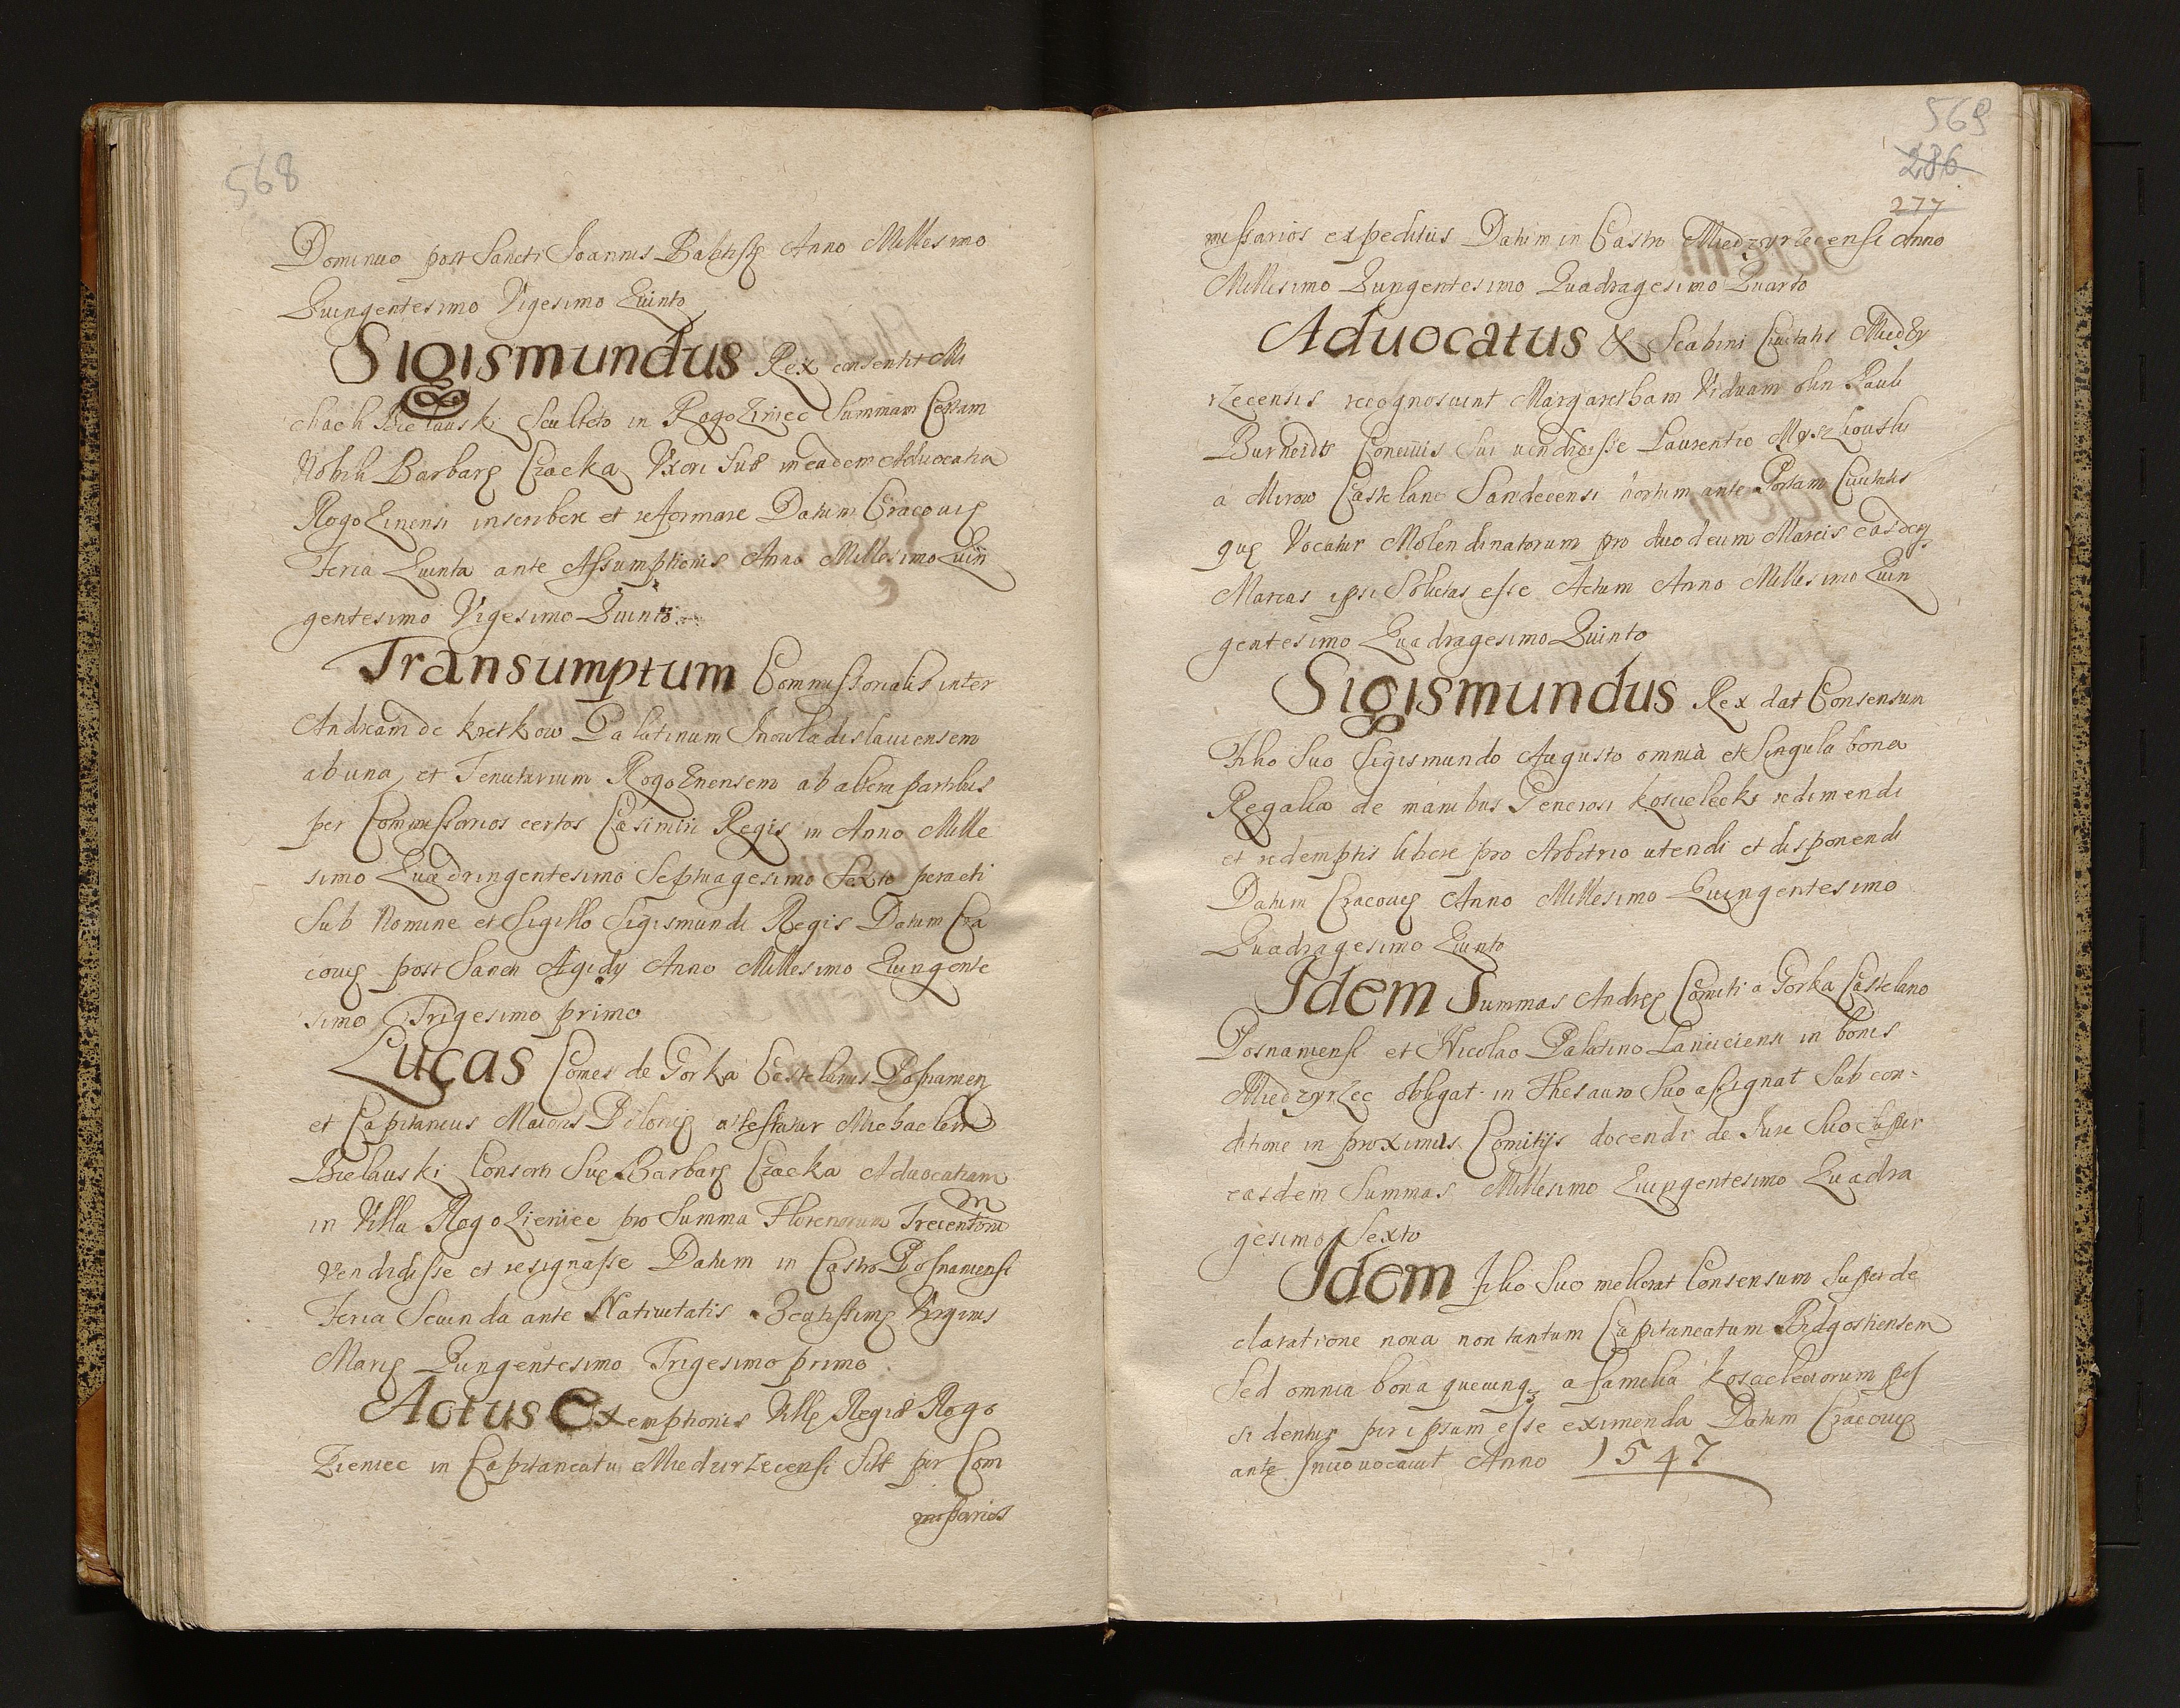 568
Dominico post Sancti Joannis Baptistę Anno Millesimo
Quingentesimo Vigesimo Quinto
Sigismundus Rex consentit Mi
chaeli Bielawski Sculteto in Rogoziniec Summam Certam
Nobili Barbarę Czacka Uxori Suę in eadem Aduocatia
Rogozinensi inscribere et reformare Datum Cracouię
Feria Quinta ante Assumptionis Anno Millesimo Quin
gentesimo Vigesimo Quinto
Transumptum Commissorialis inter
Andream de Kretkow Palatinum Inowladislauiensem
ab una, et Tenutarium Rogoznensem ab altera partibus
per Commissarios certos Casimiri Regis in Anno Mille
simo Quadringentesimo Septuagesimo Sexto peracti
Sub Nomine et Sigillo Sigismundi Regis Datum Cra
couię post Sancti Ægidÿ Anno Millesimo Quingente
simo Trigesimo primo
Lucas Comes de Gorka Castelanus Posnanien
et Capitaneus Maioris Polonię attestatur Michaelem
Bielauski Consorti Suę Barbarę Czacka Aduocatiam
in Villa Rogozieniec pro Summa Florenorum Trecentorum
Vendidisse et resignasse Datum in Castro Posnaniensi
Feria Secunda ante Natiuitatis Beatissimę Virginis
Marię Quingentesimo Trigesimo primo
Actus Exemptionis Villę Regię Rogo
Zieniec in Capitaneatu Miedzirzecensi Sitę per Com
missarios
569
286
277
missarios expeditus Datum in Castro Miedzyrzecensi Anno
Millesimo Quingentesimo Quadragesimo Quarto
Aduocatus & Scabini Ciuitatis Miedzy
rzecensis recognoscunt Margaretham Viduam olim Pauli
Burnerdt Conciuis Sui uendidisse Laurentio Myszkouski
a Mirow Castelano Sandecensi hortum ante Portam Ciuitatis
quę Vocatur Molendinatorum pro duodecim Marcis easdeq
Marcas ipsi Solutas esse Actum Anno Millesimo Quin
gentesimo Quadragesimo Quinto
Sigismundus Rex dat Consensum
Filio Suo Sigismundo Augusto omnia et Singula bona
Regalia de manibus Generosi Koscielecki redimendi
et redemptis libere pro Arbitrio utendi et disponendi
Datum Cracouię Anno Millesimo Quingentesimo
Quadragesimo Quinto
Idem Summas Andreę Comiti a Gorka Castelano
Posnaniensi et Nicolao Palatino Lanciciensi in bonis
Miedzyrzec obligat in Thesauro Suo assignat Sub con-
ditione in proximis Comitijs docendi de Jure Suo Super
easdem Summas Millesimo Quingentesimo Quadra
gesimo Sexto
Idem Filio Suo meliorat Consensum Super de
claratione noua non tantum Capitaneatum Bidgostiensem
Sed omnia bona quecunq a familia Koscielecciorum pos
sidentur per ipsum esse eximenda Datum Cracouię
ante Anno 1547